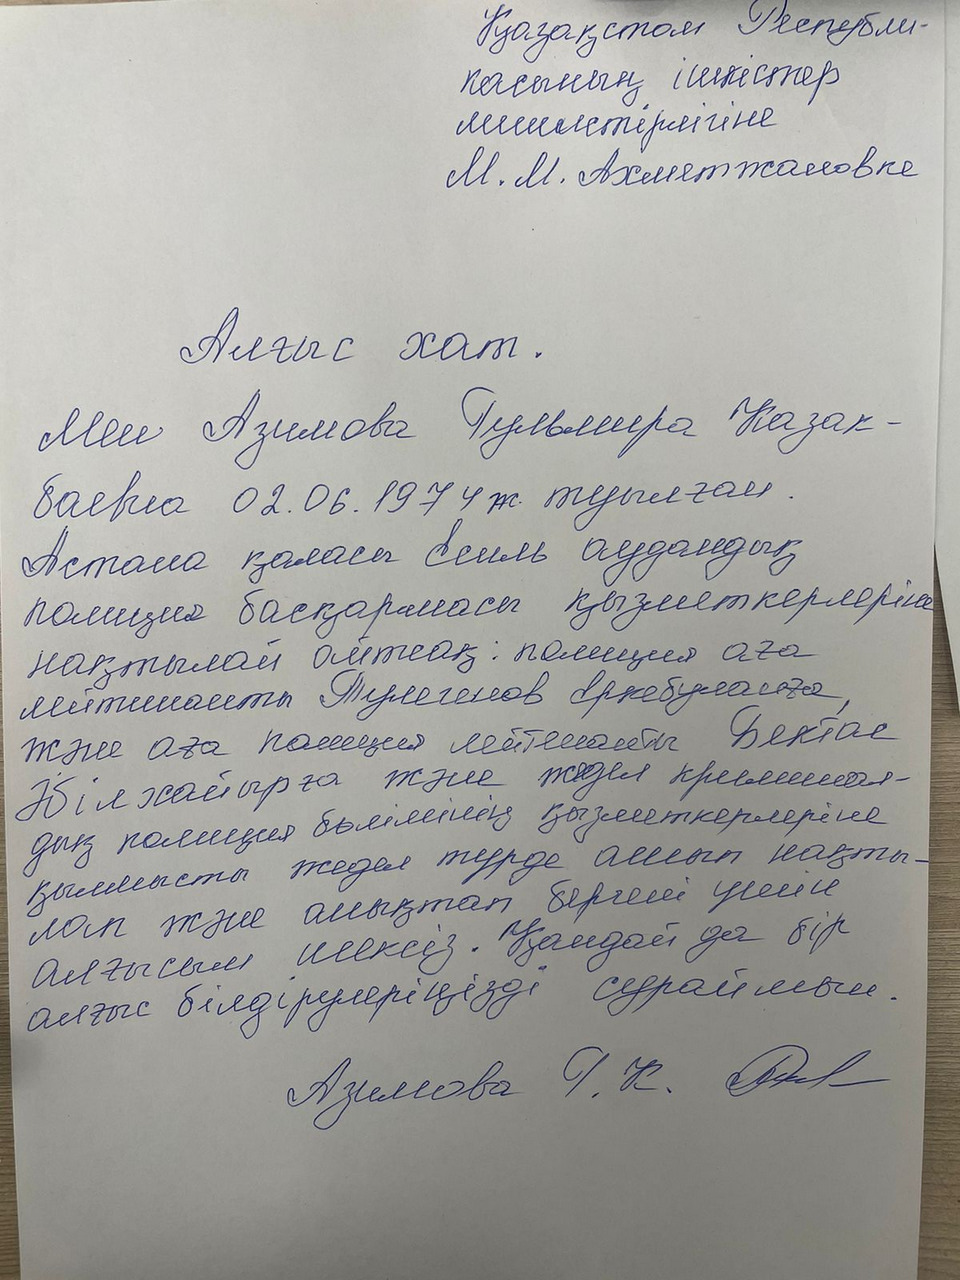 Қазақстан Республи-
касының ішкістер
министірлігіне
М. М. Ахметжановке
Алғыс хат.
Мен Азимова Гульмира Казак-
баевна 02.06.1974 ж. туылған.
Астана қаласы Есиль аудандық
полиция басқармасы қызметкерлеріне
нақтылай айтсақ: полиция аға
лейтинанты Тулегенов Еркебуланға,
және аға полиция лейтенанты Бектас
Әбілхайырға және жедел криминал-
дық полиция бөлімінің қызметкерлеріне
қылмысты жедел турде ашып нақты-
лап және анықтап бергені үшін
алғысым шексіз. Қандай да бір
алғыс білдірулеріңізді сұраймын.
Азимова Г. К.